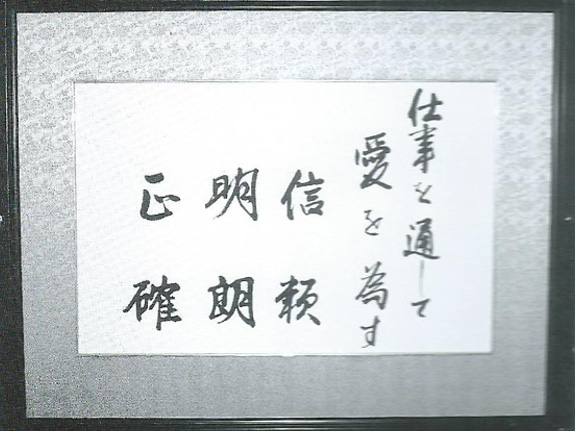 仕事を通して
愛を為す
信頼
明朗
正確